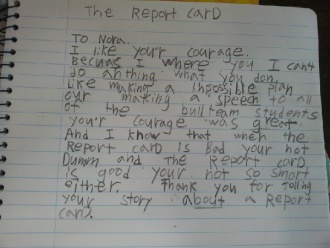 The Report CarD
To Nora.
I like your courage.
Becuas I where you I can't
do anthing what you don,
Like making a Inpossible plan
our making a speech to all
of the bullteam students
your courage was great
And I know that when the
Report card is Bad your not
Dumm and the Report carD
is good your not so smart
either. Thank you for telling
your story about a Report
CarD.